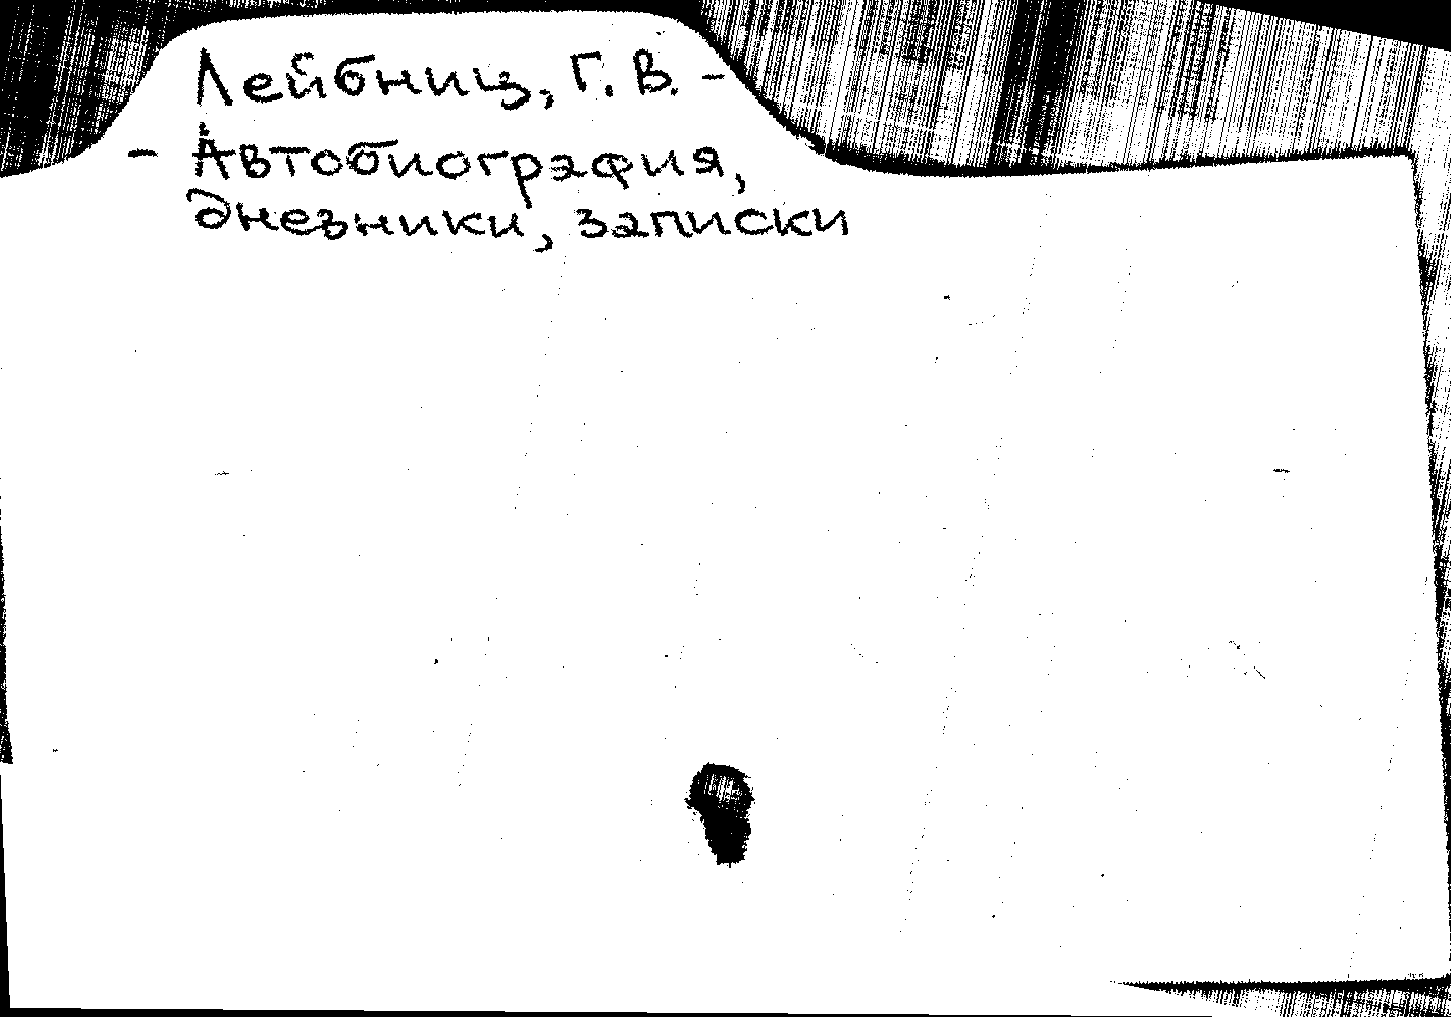 Лейбниц, Г. В. -
- Автобиография,
дневники, записки